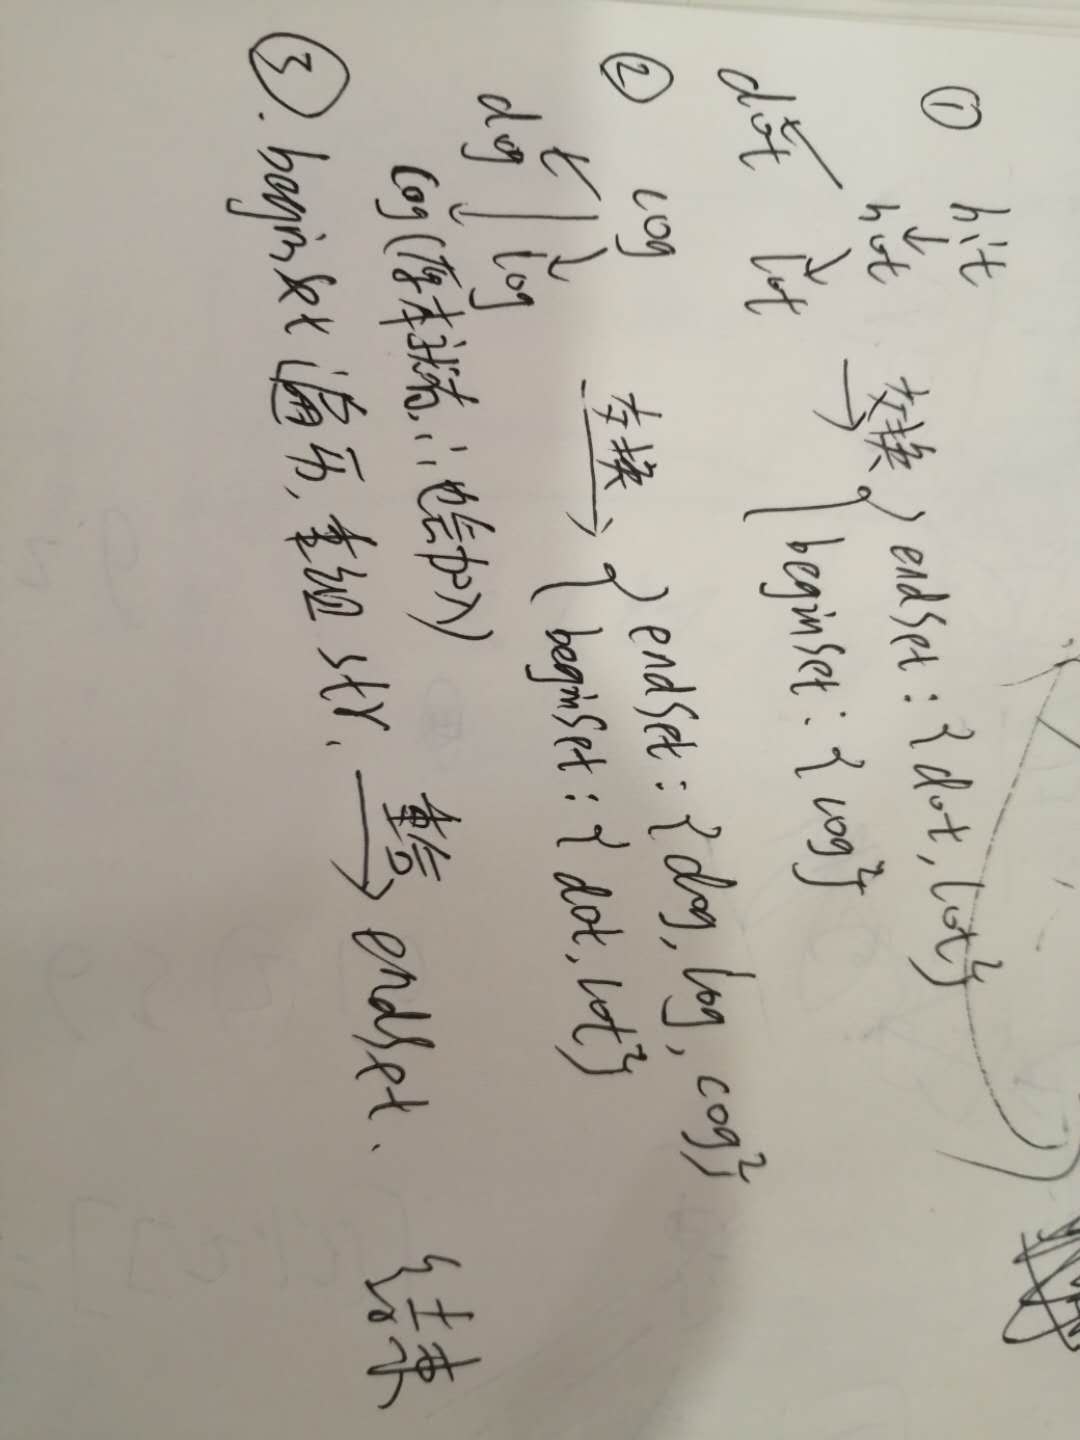 ① hit
hot
dot lot
交换
endSet : {dot, lot}
beginSet : { cog}
② cog
dog log
cog(原本就有, ∴也会加入)
交换
endSet : {dog, log, cog}
beginSet : { dot, lot}
③. beginSet 遍历, 重组 str, 重合 endSet. 结束